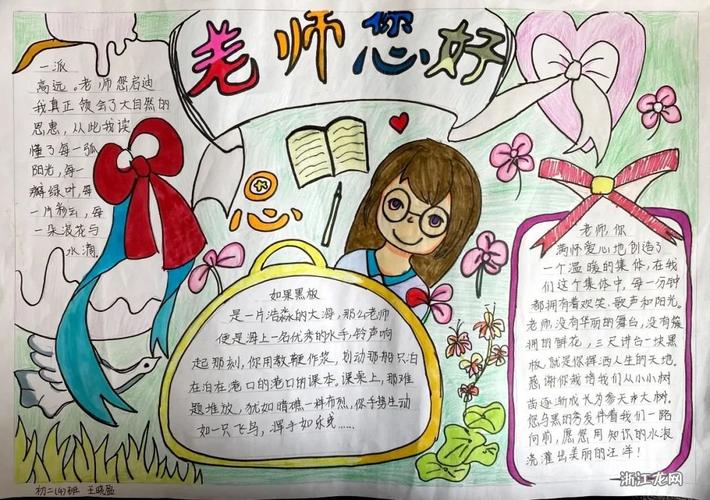 老师您好
一派
高远。老师您启迪
我真正领会了大自然的
恩惠，从此我读
懂了每一弧
阳光，每一
瓣绿叶，每
一片彩云，每
一朵浪花与
水滴
恩
如果黑板
是一片浩淼的大海，那么老师
便是海上一名优秀的水手，铃声响
起那刻，你用教鞭作浆，划动那船只泊
在泊在港口的港口的课本。课桌上，那难
题堆放，犹如暗礁一样布列，你手势生动
如一只飞鸟，浑手如乐线……
老师，你
满怀爱心地创造了
一个温暖的集体，在我
们这个集体中，每一分钟
都拥有着欢笑、歌声和阳光。
老师，没有华丽的舞台，没有簇
拥的鲜花，三尺讲台一块黑
板，就是你挥洒人生的天地。
感谢你栽培我们从小小树
苗逐渐成长为参天大树。
您乌黑的秀发伴着我们一路
向前，愿您用知识的水浪
浇灌出美丽的汪洋！
初二(4)班 王晓盈
浙江龙网